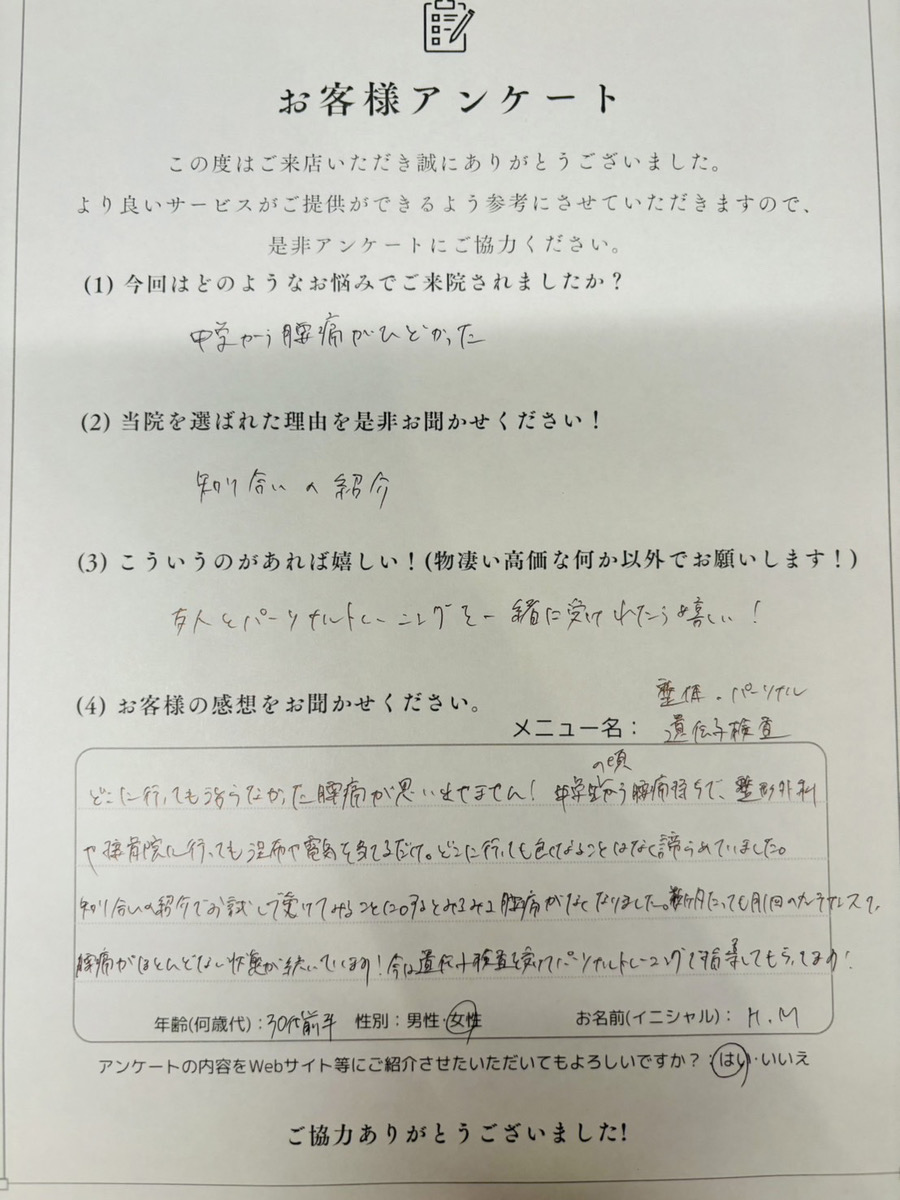 お客様アンケート
この度はご来店いただき誠にありがとうございました。
より良いサービスがご提供ができるよう参考にさせていただきますので、
是非アンケートにご協力ください。
(1) 今回はどのようなお悩みでご来院されましたか？
中学から腰痛がひどかった
(2) 当院を選ばれた理由を是非お聞かせください！
知り合いの紹介
(3) こういうのがあれば嬉しい！(物凄い高価な何か以外でお願いします！)
友人とパーソナルトレーニングを一緒に受けれたら嬉しい！
(4) お客様の感想をお聞かせください。
メニュー名： 整体・パーソナル
遺伝子検査
どこに行っても治らなかった腰痛が思い出せません！中学生の頃から腰痛持ちで、整形外科
や接骨院に行っても湿布や電気を当てるだけ。どこに行っても良くなることはなく諦らめていました。
知り合いの紹介でお試しで受けてみることに。するとみるみる腰痛がなくなりました。数ヶ月たっても月1回のメンテナンスで、
腰痛がほとんどない状態が続いています！今は遺伝子検査を受けてパーソナルトレーニングで指導してもらってます！
年齢(何歳代)：30代前半 性別：男性・女性 お名前(イニシャル)： H.M
アンケートの内容をWebサイト等にご紹介させたいただいてもよろしいですか？ はい・いいえ
ご協力ありがとうございました!